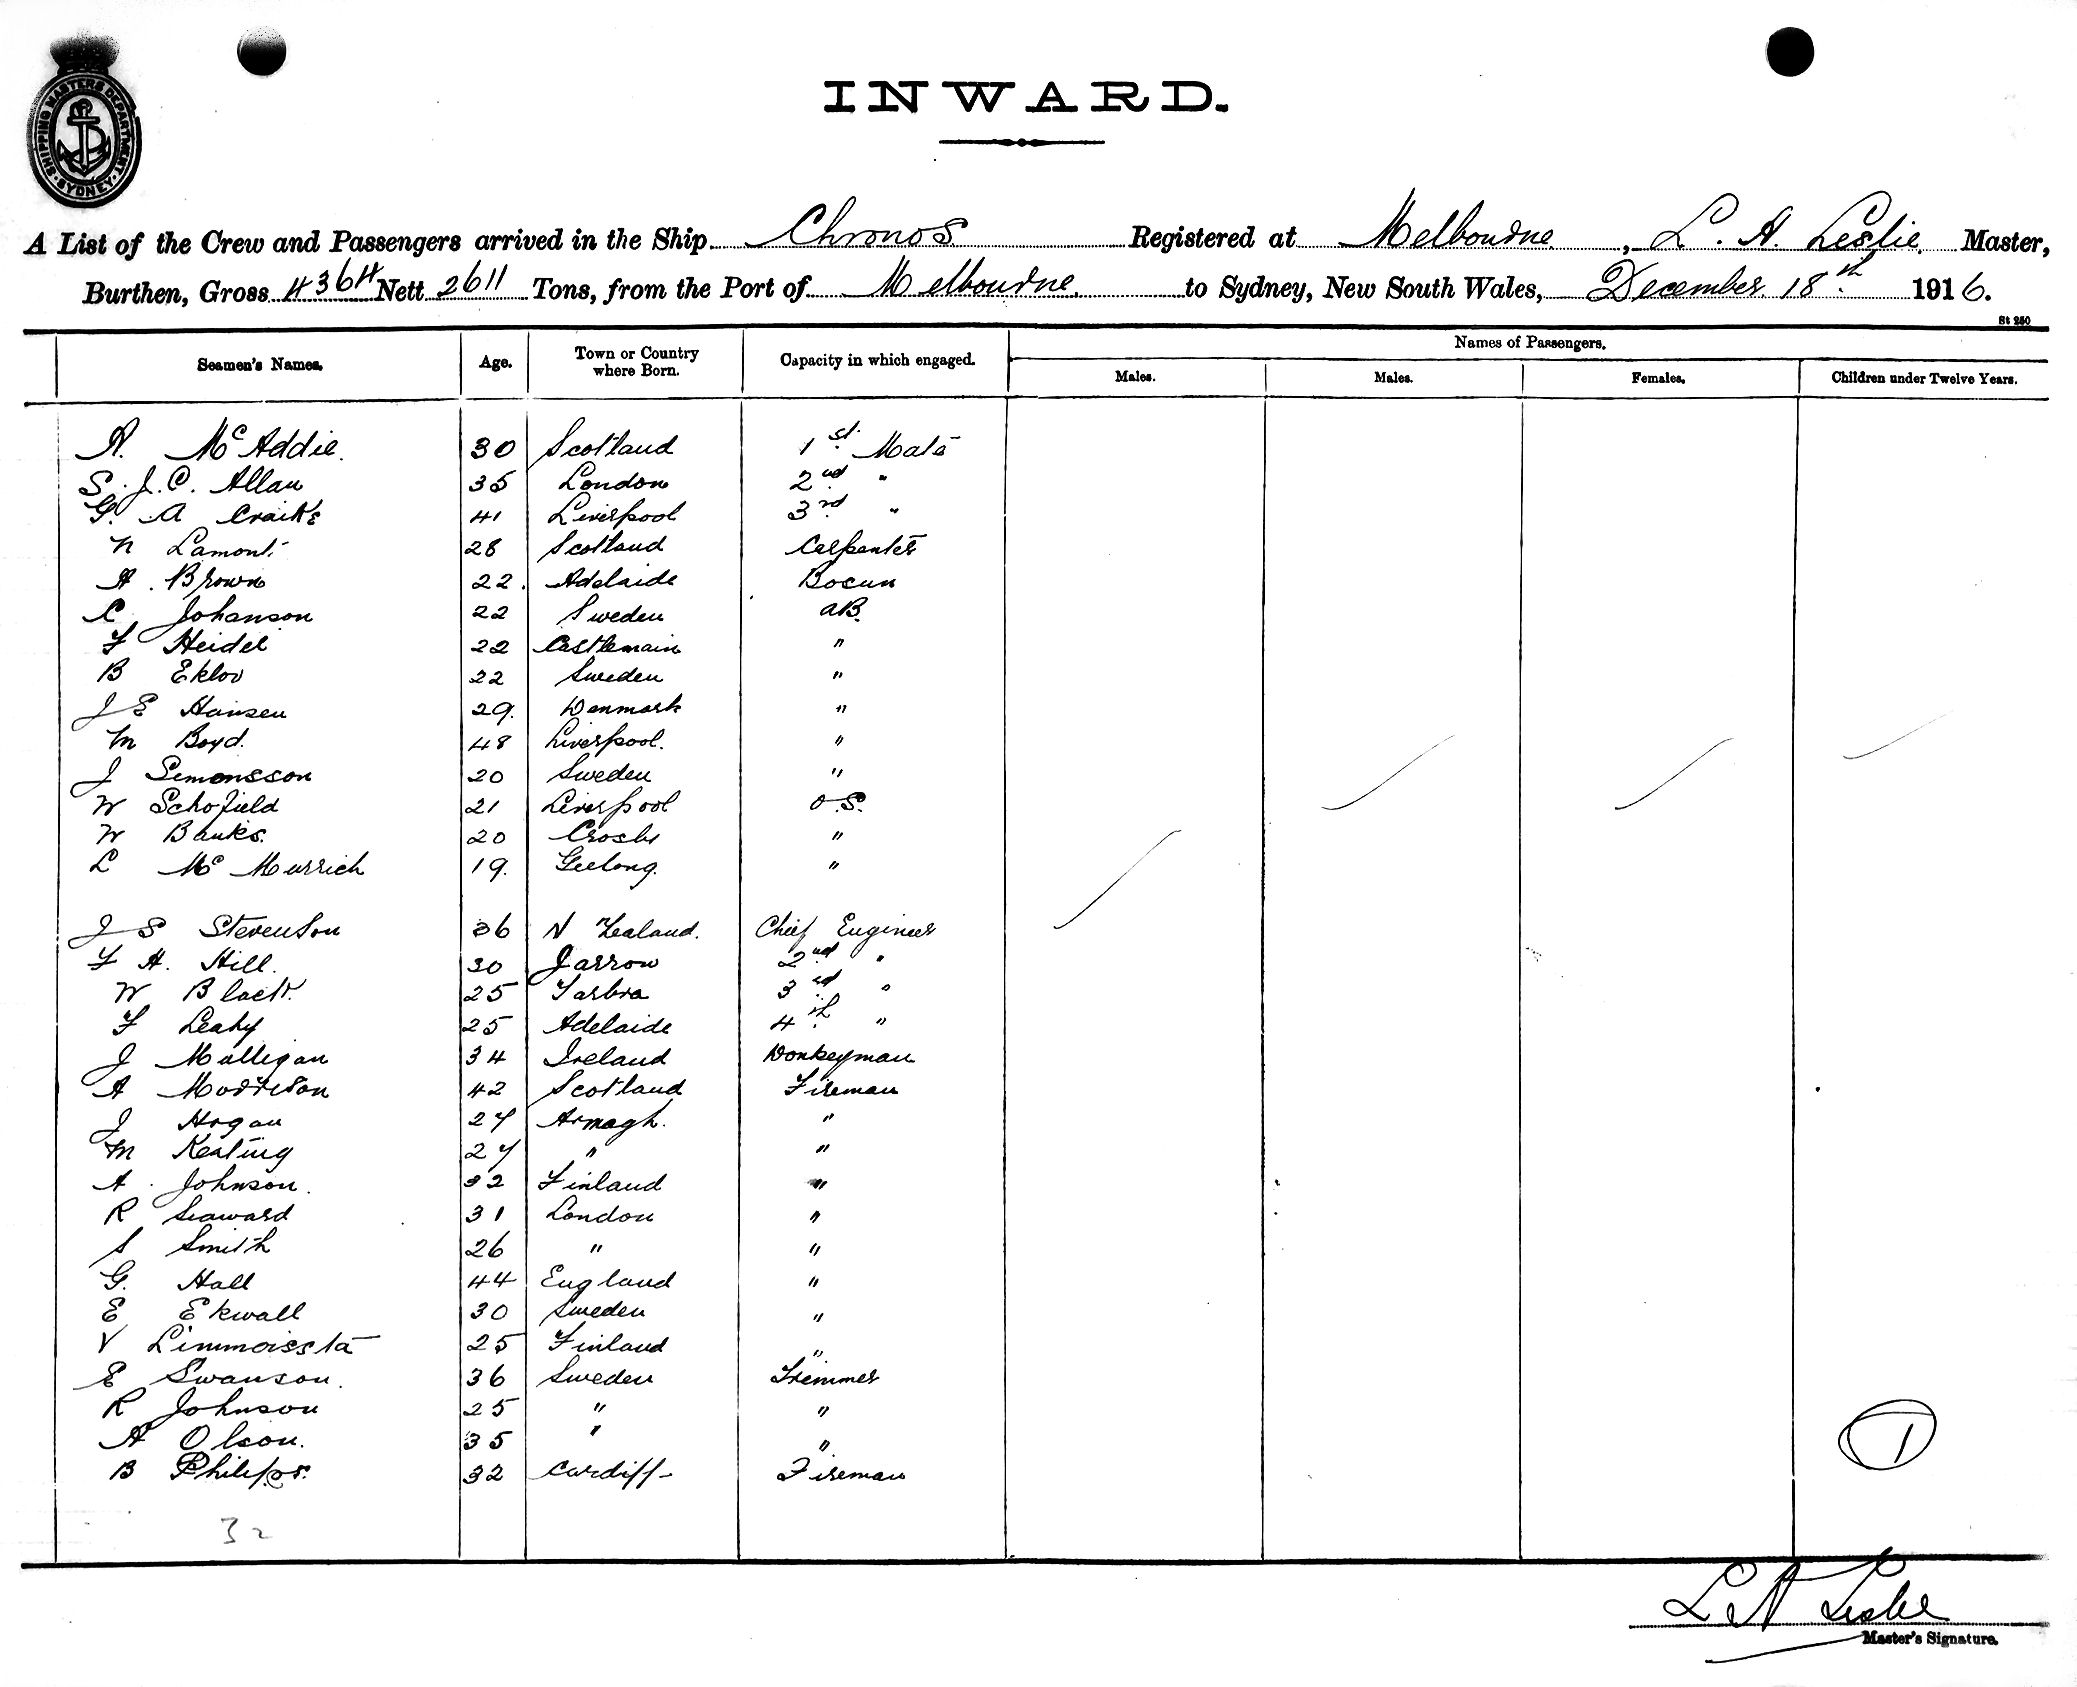 SHIPPING MASTERS DEPARTMENT
SYDNEY
INWARD.
A List of the Crew and Passengers arrived in the Ship Chronos Registered at Melbourne, L. A. Leslie. Master,
Burthen, Gross 4364 Nett 2611 Tons, from the Port of Melbourne. to Sydney, New South Wales, December 18th 1916.
St 250
Seamen's Names. Age. Town or Country where Born. Capacity in which engaged. Names of Passengers.
Males. Males. Females. Children under Twelve Years.
A. McAddie. 30 Scotland 1st. Mate
S. J. C. Allan 35 London 2nd "
G. A Craike 41 Liverpool 3rd "
N Lamont 28 Scotland Carpenter
A. Brown 22. Adelaide Bocun
C Johanson 22 Sweden AB.
F Heidel 22 Castlemain "
B Eklov 22 Sweden "
J E Hansen 29. Denmark "
M Boyd. 48 Liverpool. "
J Simonsson 20 Sweden "
W Schofield 21 Liverpool O.S.
W Banks. 20 Crosby "
L McMurrich 19. Geelong. "
J S Stevenson 36 N Zealand. Chief Engineer
F H. Hill. 30 Jarrow 2nd "
W Black. 25 3rd "
F Leahy 25 Adelaide 4th "
J Mulligan 34 Ireland Donkeyman
A Morrison 42 Scotland Fireman
J Hogan 27 Armagh. "
M Keating 27 " "
A. Johnson. 32 Finland "
R Seaward 31 London "
S Smith 26 " "
G. Hall 44 England "
E Ekwall 30 Sweden "
V 25 Finland "
E Swanson. 36 Sweden Trimmer
R Johnson 25 " "
A Olson. 35 " "
B Philips. 32 Cardiff Fireman
1
32
L A Leslie
Master's Signature.